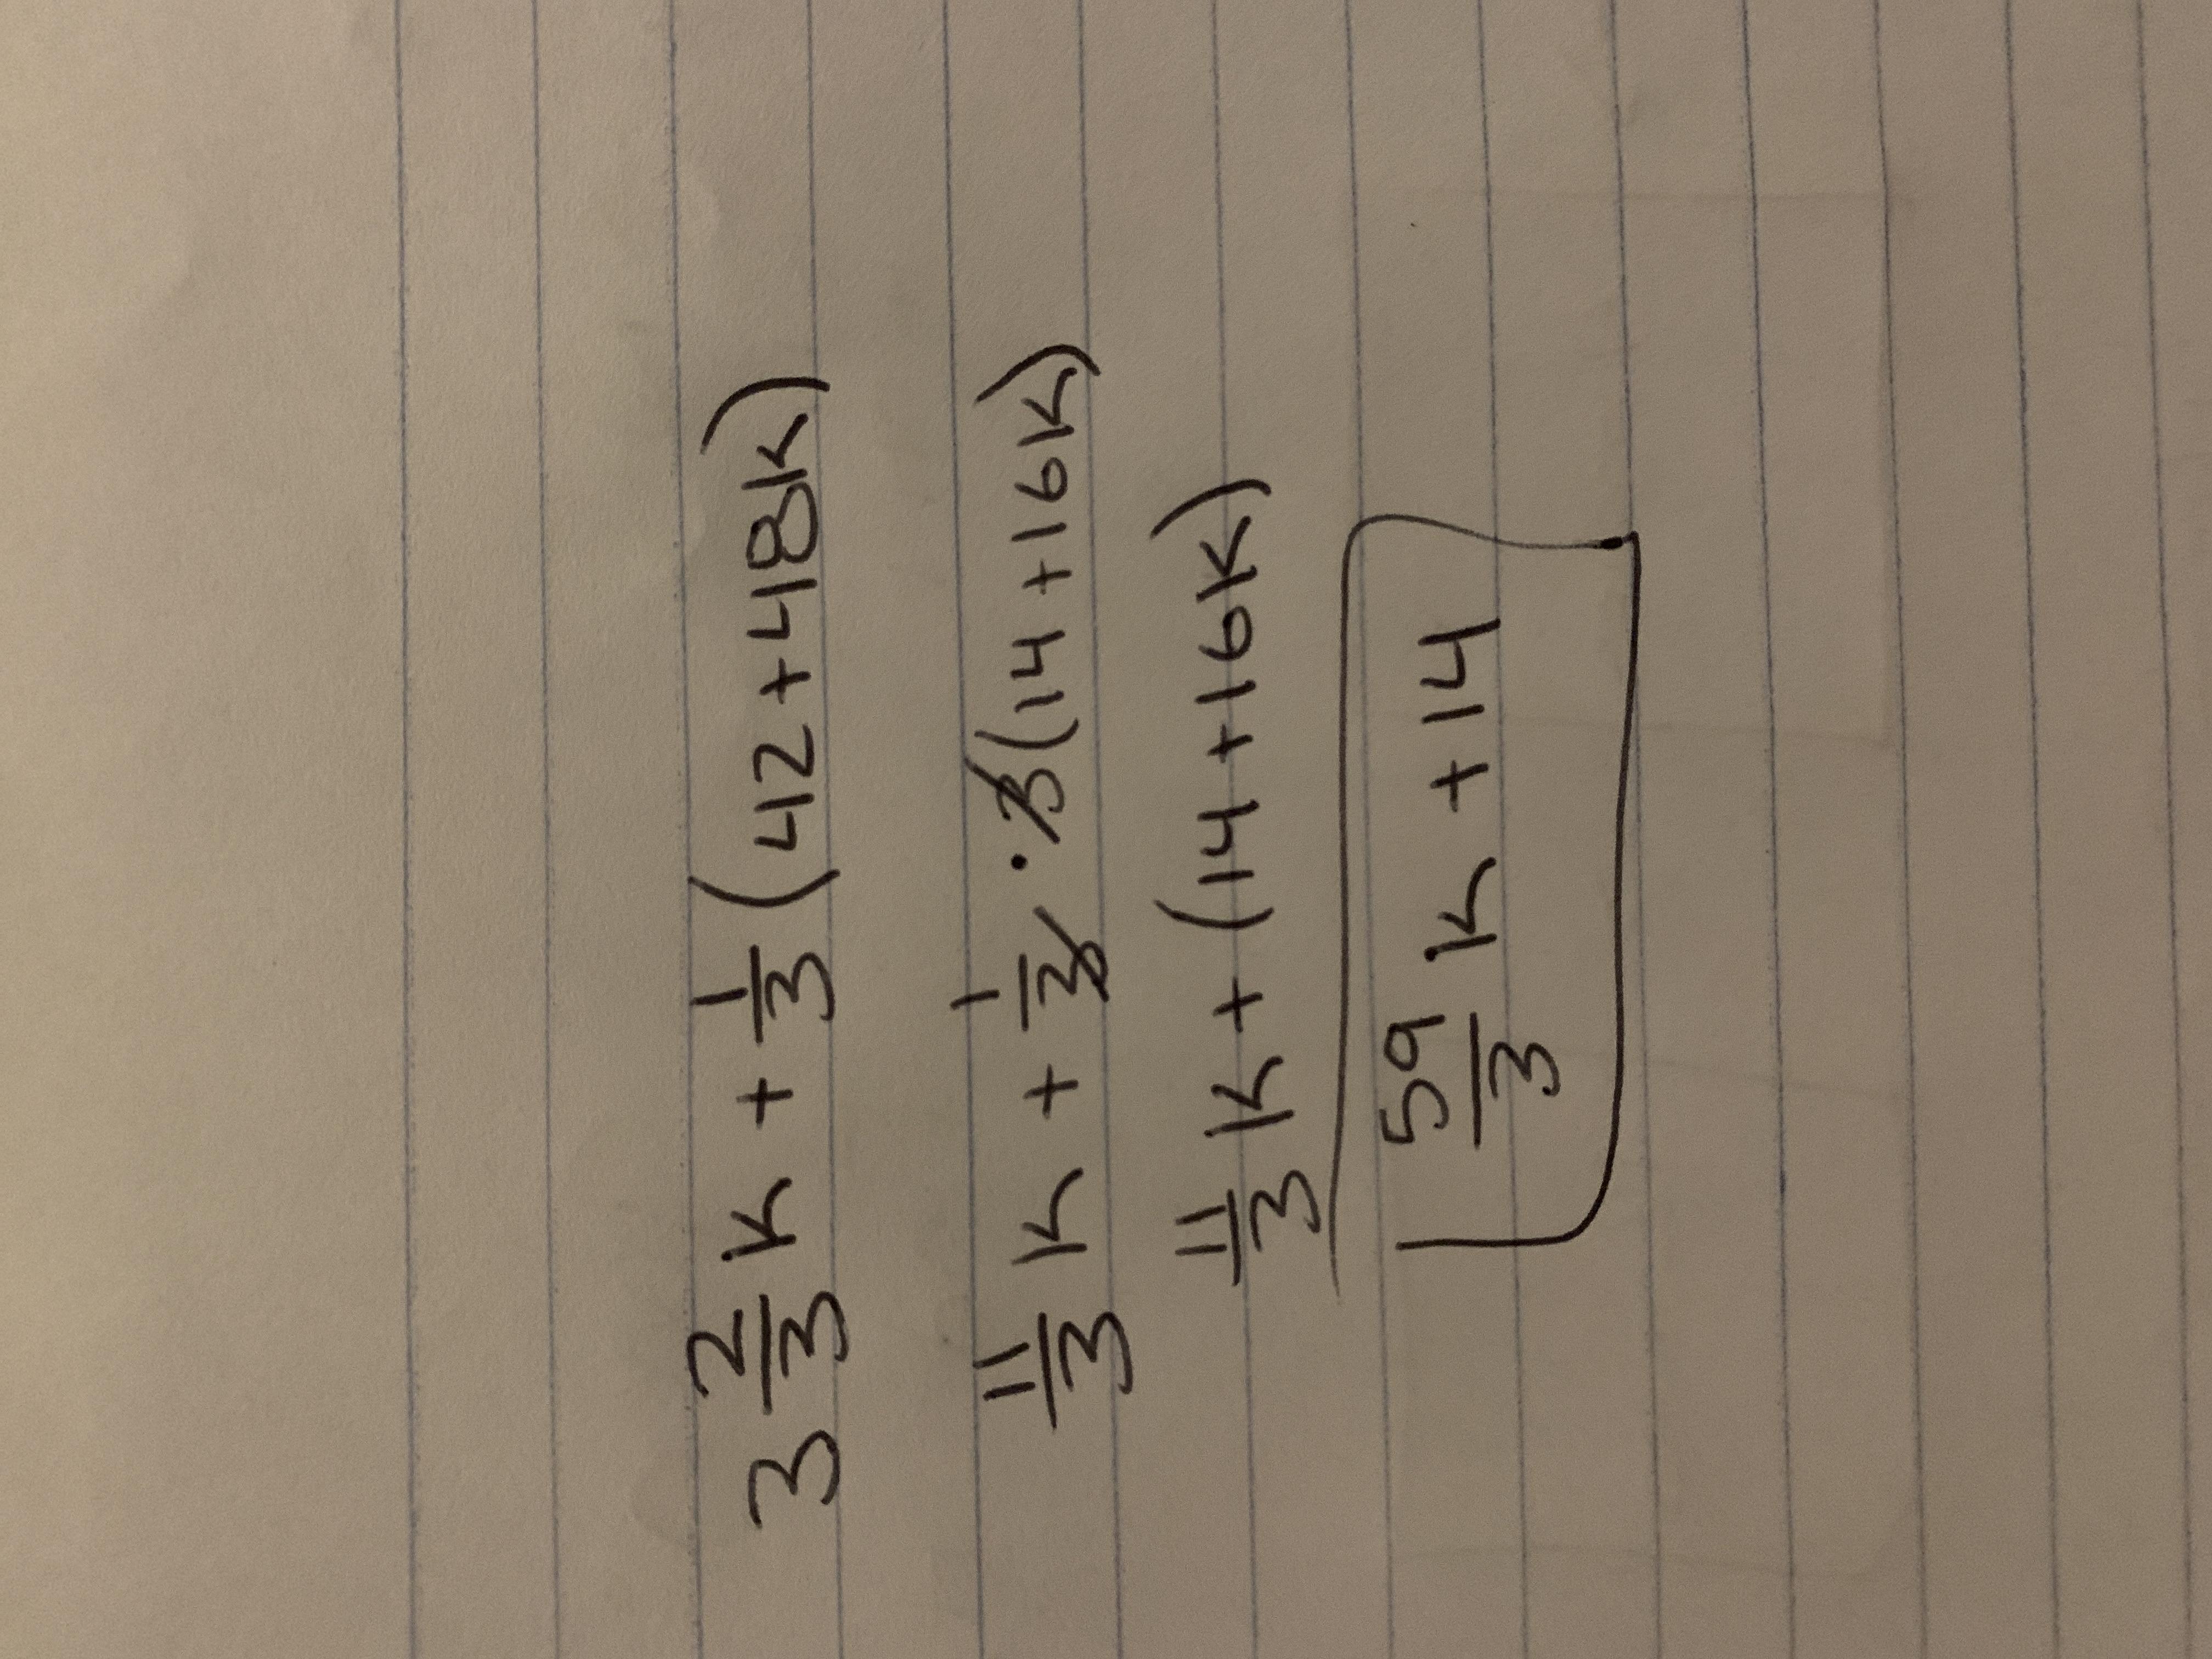 3 2/3 K + 1/3 (42 + 48K)
11/3 K + 1/3 · 3(14 + 16K)
11/3 K + (14 + 16K)
59/3 K + 14